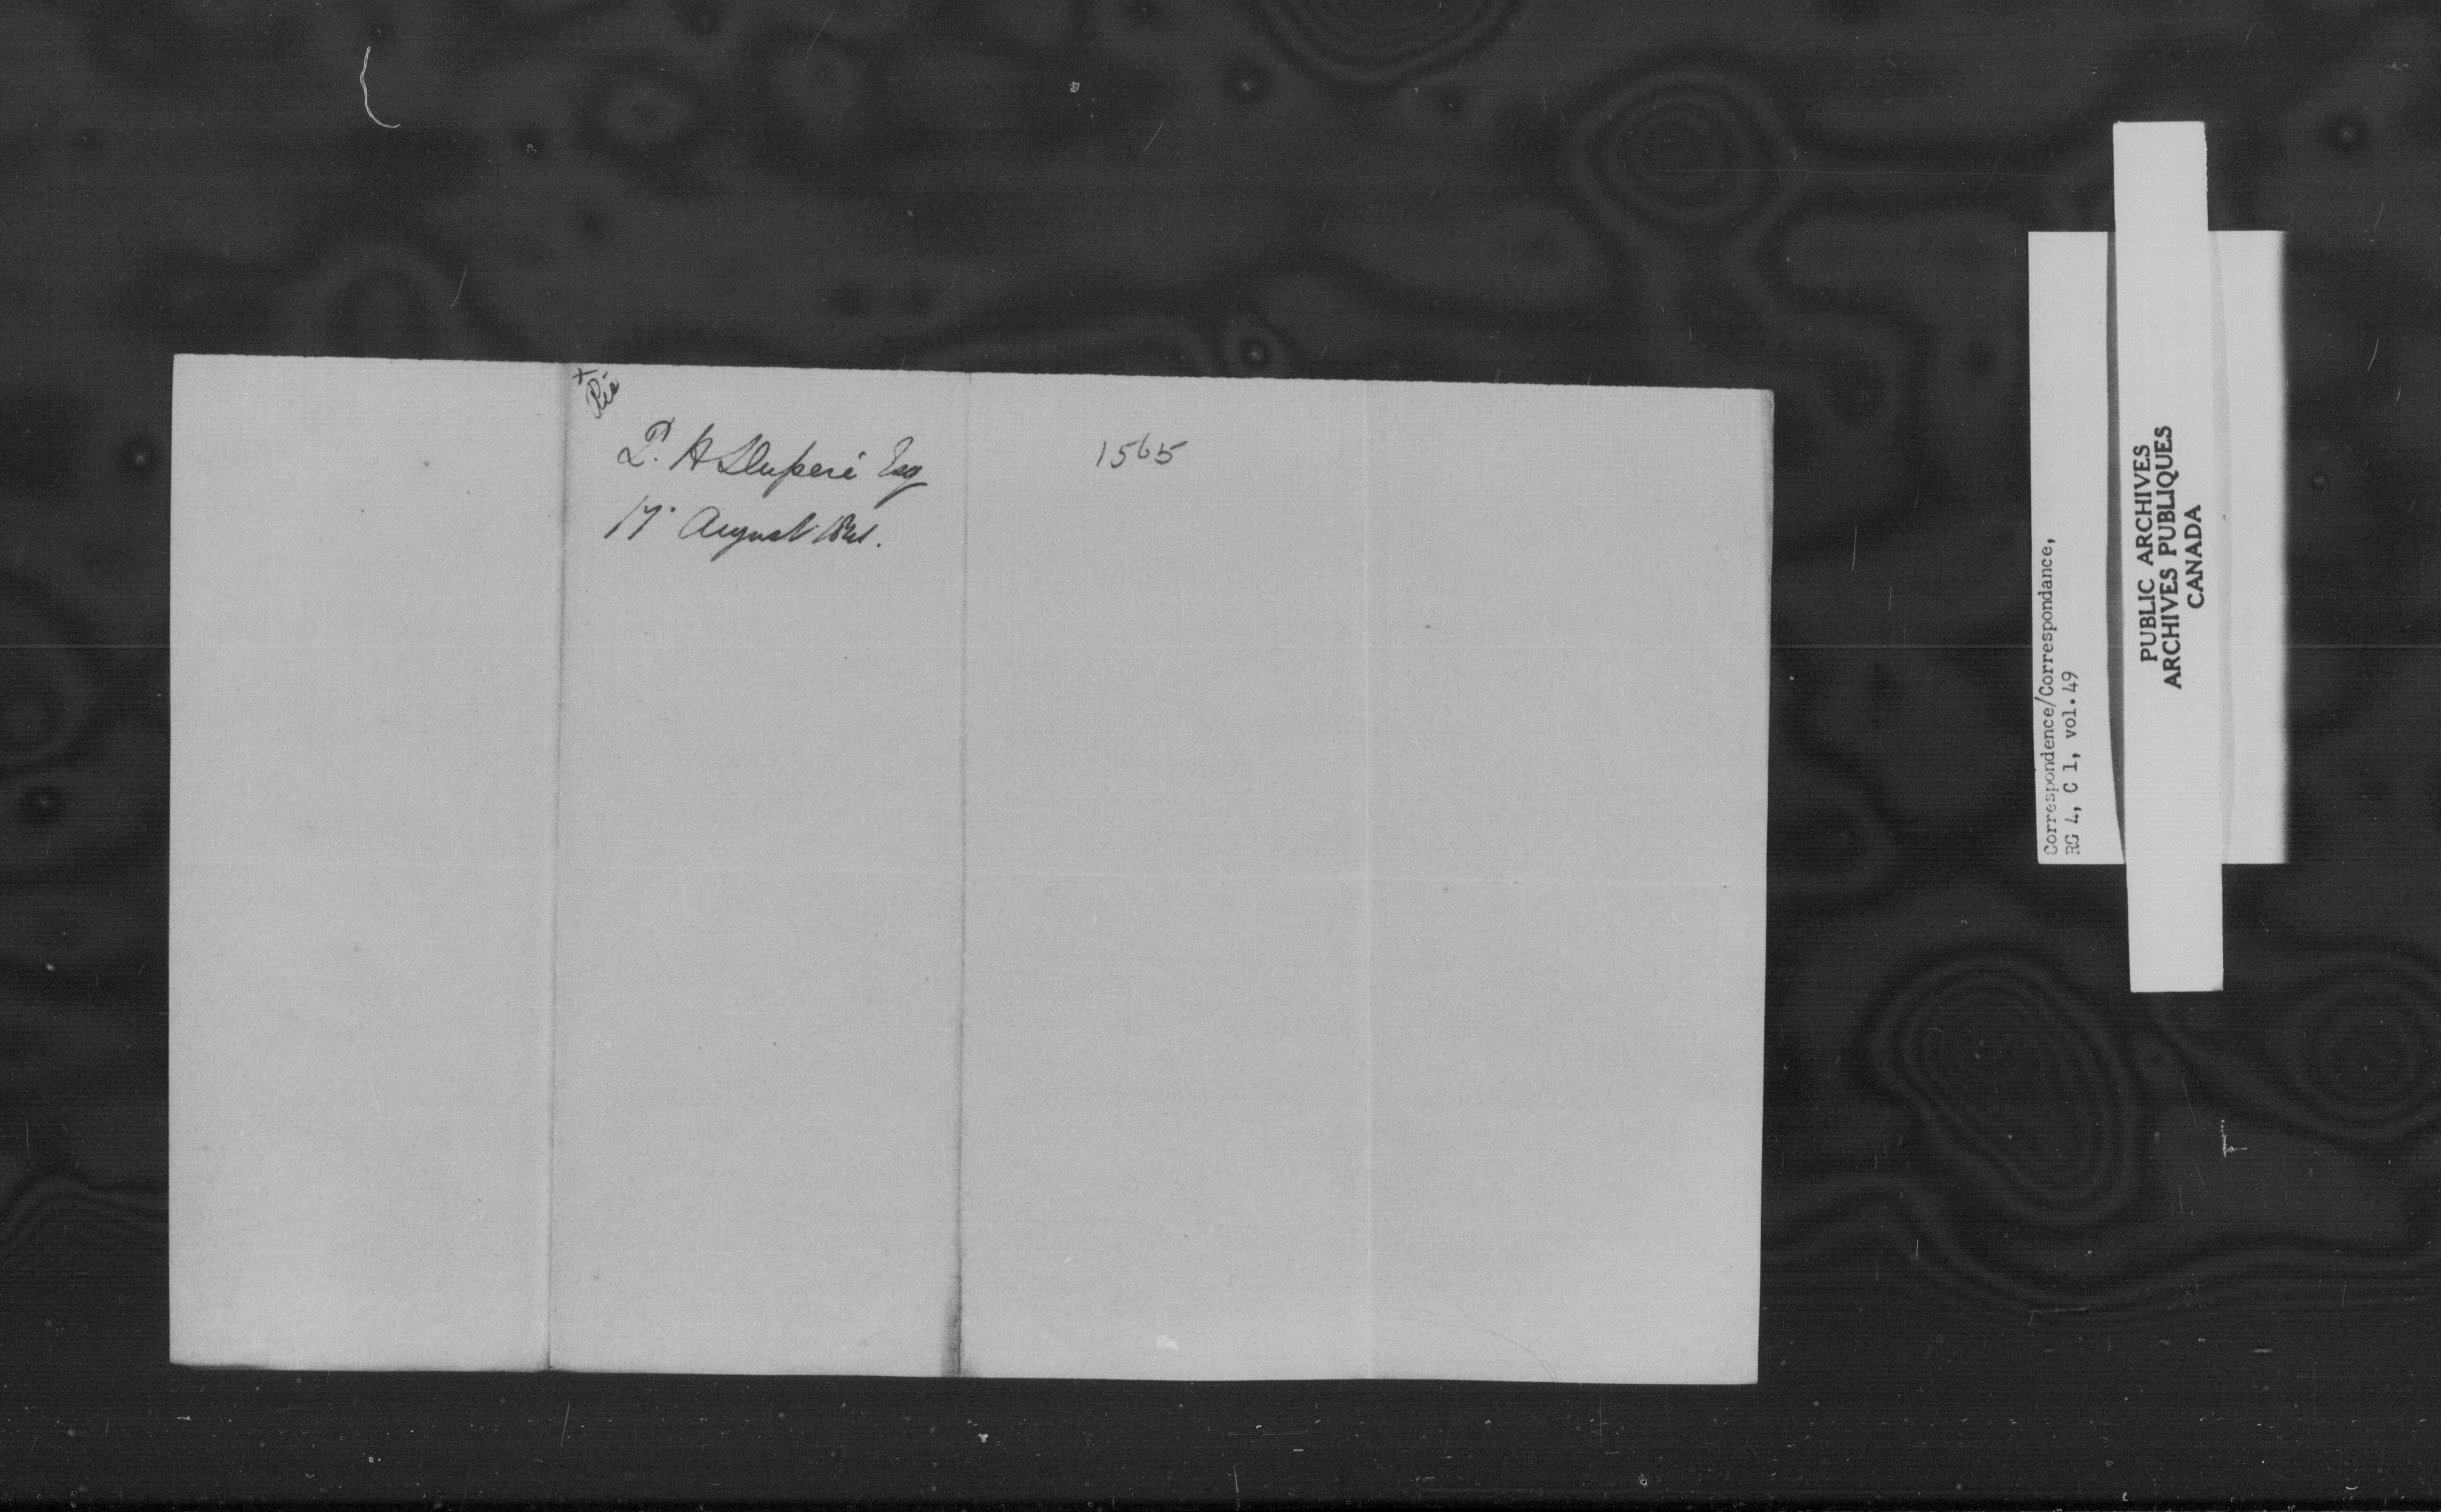 +
L. H Duperé Esq
17. August 1841.
1565
Correspondence/Correspondance,
RG 4, C 1, vol. 49
PUBLIC ARCHIVES
ARCHIVES PUBLIQUES
CANADA